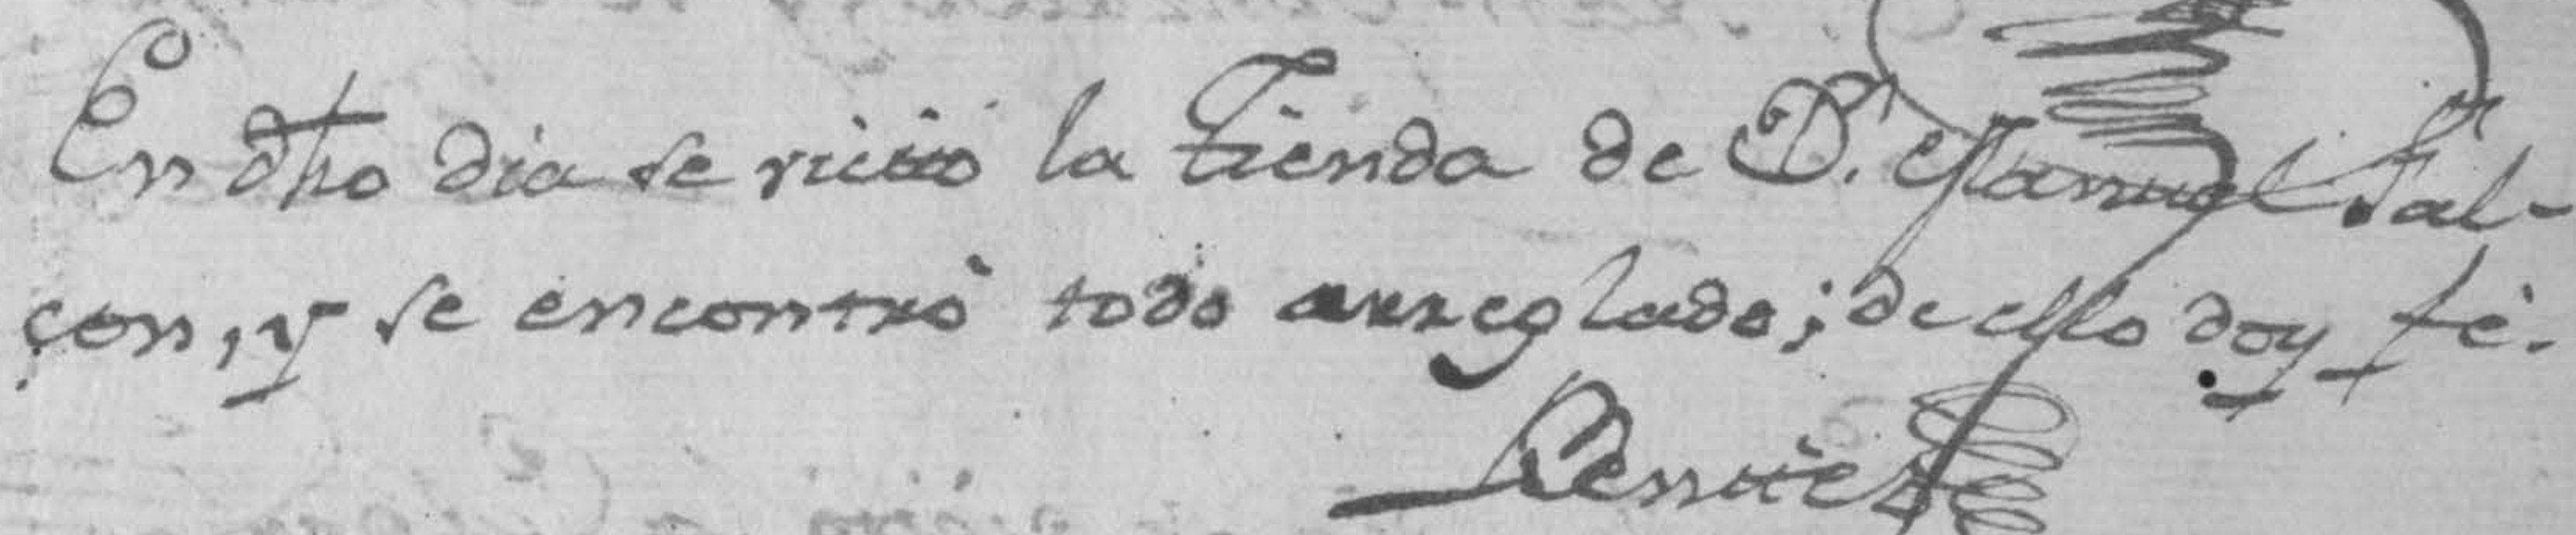 En dho dia se visitó la Tienda de Dn. Manuel Fal-
con, y se encontrò todo arreglado; de ello doy fè.